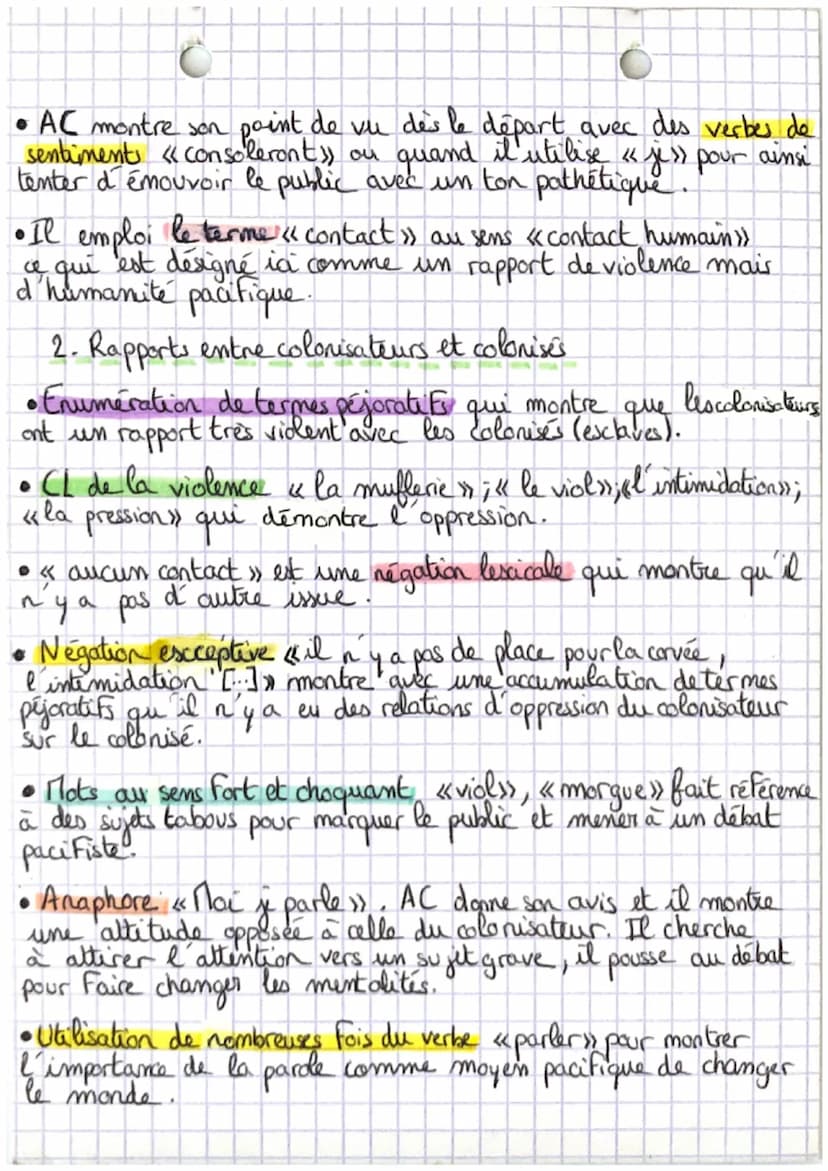 • AC montre son point de vu dès le départ avec des verbes de
sentiments « consoleront » ou quand il utilise « je » pour ainsi
tenter d'émouvoir le public avec un ton pathétique.
• Il emploi le terme « contact » au sens « contact humain »
ce qui est désigné ici comme un rapport de violence mais
d'humanité pacifique.
2. Rapports entre colonisateurs et colonisés
• Enumération de termes péjoratifs qui montre que les colonisateurs
ont un rapport très violent avec les colonisés (esclaves).
• CL de la violence « la muflerie » ; « le viol » ; « l'intimidation » ;
« la pression » qui démontre l'oppression.
• « aucun contact » est une négation lexicale qui montre qu'il
n'y a pas d'autre issue.
• Négation exceptive « il n'y a pas de place pour la corvée,
l'intimidation [...] » montre avec une accumulation de termes
péjoratifs qu'il n'y a eu des relations d'oppression du colonisateur
sur le colonisé.
• Mots au sens fort et choquant « viol », « morgue » fait référence
à des sujets tabous pour marquer le public et mener à un débat
pacifiste.
• Anaphore « Moi je parle ». AC donne son avis et il montre
une attitude opposée à celle du colonisateur. Il cherche
à attirer l'attention vers un sujet grave, il pousse au débat
pour faire changer les mentalités.
• Utilisation de nombreuses fois du verbe « parler » pour montrer
l'importance de la parole comme moyen pacifique de changer
le monde.